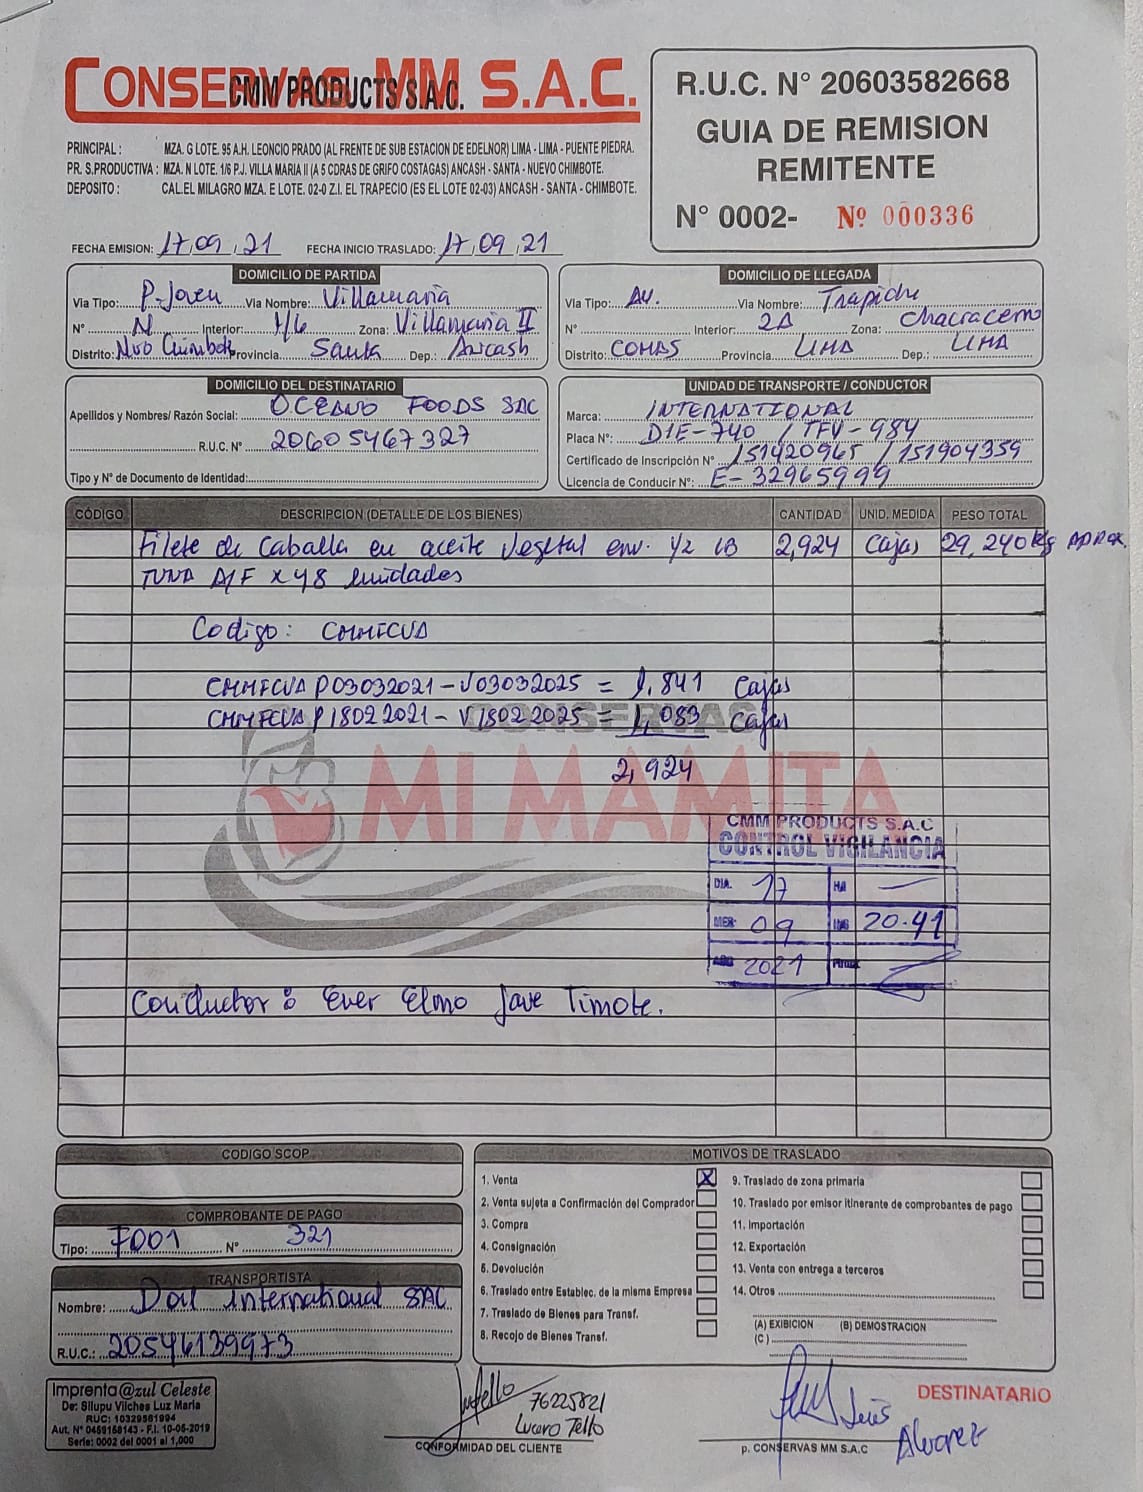 CONSERVAS MM S.A.C.
CMM PRODUCTS S.A.C.
PRINCIPAL : MZA. G LOTE. 95 A.H. LEONCIO PRADO (AL FRENTE DE SUB ESTACION DE EDELNOR) LIMA - LIMA - PUENTE PIEDRA.
PR. S.PRODUCTIVA : MZA. N LOTE. 1/6 P.J. VILLA MARIA II (A 5 CDRAS DE GRIFO COSTAGAS) ANCASH - SANTA - NUEVO CHIMBOTE.
DEPOSITO : CAL.EL MILAGRO MZA. E LOTE. 02-0 Z.I. EL TRAPECIO (ES EL LOTE 02-03) ANCASH - SANTA - CHIMBOTE.
R.U.C. N° 20603582668
GUIA DE REMISION
REMITENTE
N° 0002- Nº 000336
FECHA EMISION: 17,09,21 FECHA INICIO TRASLADO: 17,09,21
DOMICILIO DE PARTIDA
Via Tipo: P. Joven Via Nombre: Villamaria
N° N Interior: 1/6 Zona: Villamaria II
Distrito: Nvo Chimbote Provincia Santa Dep.: Ancash
DOMICILIO DE LLEGADA
Via Tipo: AV. Via Nombre: Trapiche
N° Interior: 2A Zona: Chacracerro
Distrito: COMAS Provincia LIMA Dep.: LIMA
DOMICILIO DEL DESTINATARIO
Apellidos y Nombres/ Razón Social: OCEANO FOODS SAC
R.U.C. N° 20605467327
Tipo y N° de Documento de Identidad:
UNIDAD DE TRANSPORTE / CONDUCTOR
Marca: INTERNATIONAL
Placa N°: D1E-740 / TFV-984
Certificado de Inscripción N° 151420965 / 151904359
Licencia de Conducir N°: E-32965999
CÓDIGO DESCRIPCION (DETALLE DE LOS BIENES) CANTIDAD UNID. MEDIDA PESO TOTAL
Filete de Caballa en aceite Vegetal env. 1/2 LB 2,924 Cajas 29,240 kg APROX.
TUNA A/F x 48 Unidades
Codigo: CMMFCVA
CMMFCVA P03032021-V03032025 = 1,841 Cajas
CMMFCVA P18022021-V18022025 = 1,083 Cajas
2,924
CONSERVAS
MI MAMITA
CMM PRODUCTS S.A.C
CONTROL VIGILANCIA
DIA. 17
MES 09 20.41
AÑO 2021
Conductor: Ever Elmo Jave Timote.
CODIGO SCOP
COMPROBANTE DE PAGO
Tipo: F001 N° 321
TRANSPORTISTA
Nombre: Dael International SAC
R.U.C.: 20546139973
MOTIVOS DE TRASLADO
1. Venta X
2. Venta sujeta a Confirmación del Comprador
3. Compra
4. Consignación
5. Devolución
6. Traslado entre Establec. de la misma Empresa
7. Traslado de Bienes para Transf.
8. Recojo de Bienes Transf.
9. Traslado de zona primaria
10. Traslado por emisor itinerante de comprobantes de pago
11. Importación
12. Exportación
13. Venta con entrega a terceros
14. Otros
(A) EXIBICION (B) DEMOSTRACION
(C)
Imprenta@zul Celeste
De: Silupu Vilches Luz Maria
RUC: 10329561994
Aut. N° 0459158143 - F.I. 10-05-2019
Serie: 0002 del 0001 al 1,000
76225821
Lucero Tello
CONFORMIDAD DEL CLIENTE
Luis
Alvarez
p. CONSERVAS MM S.A.C
DESTINATARIO